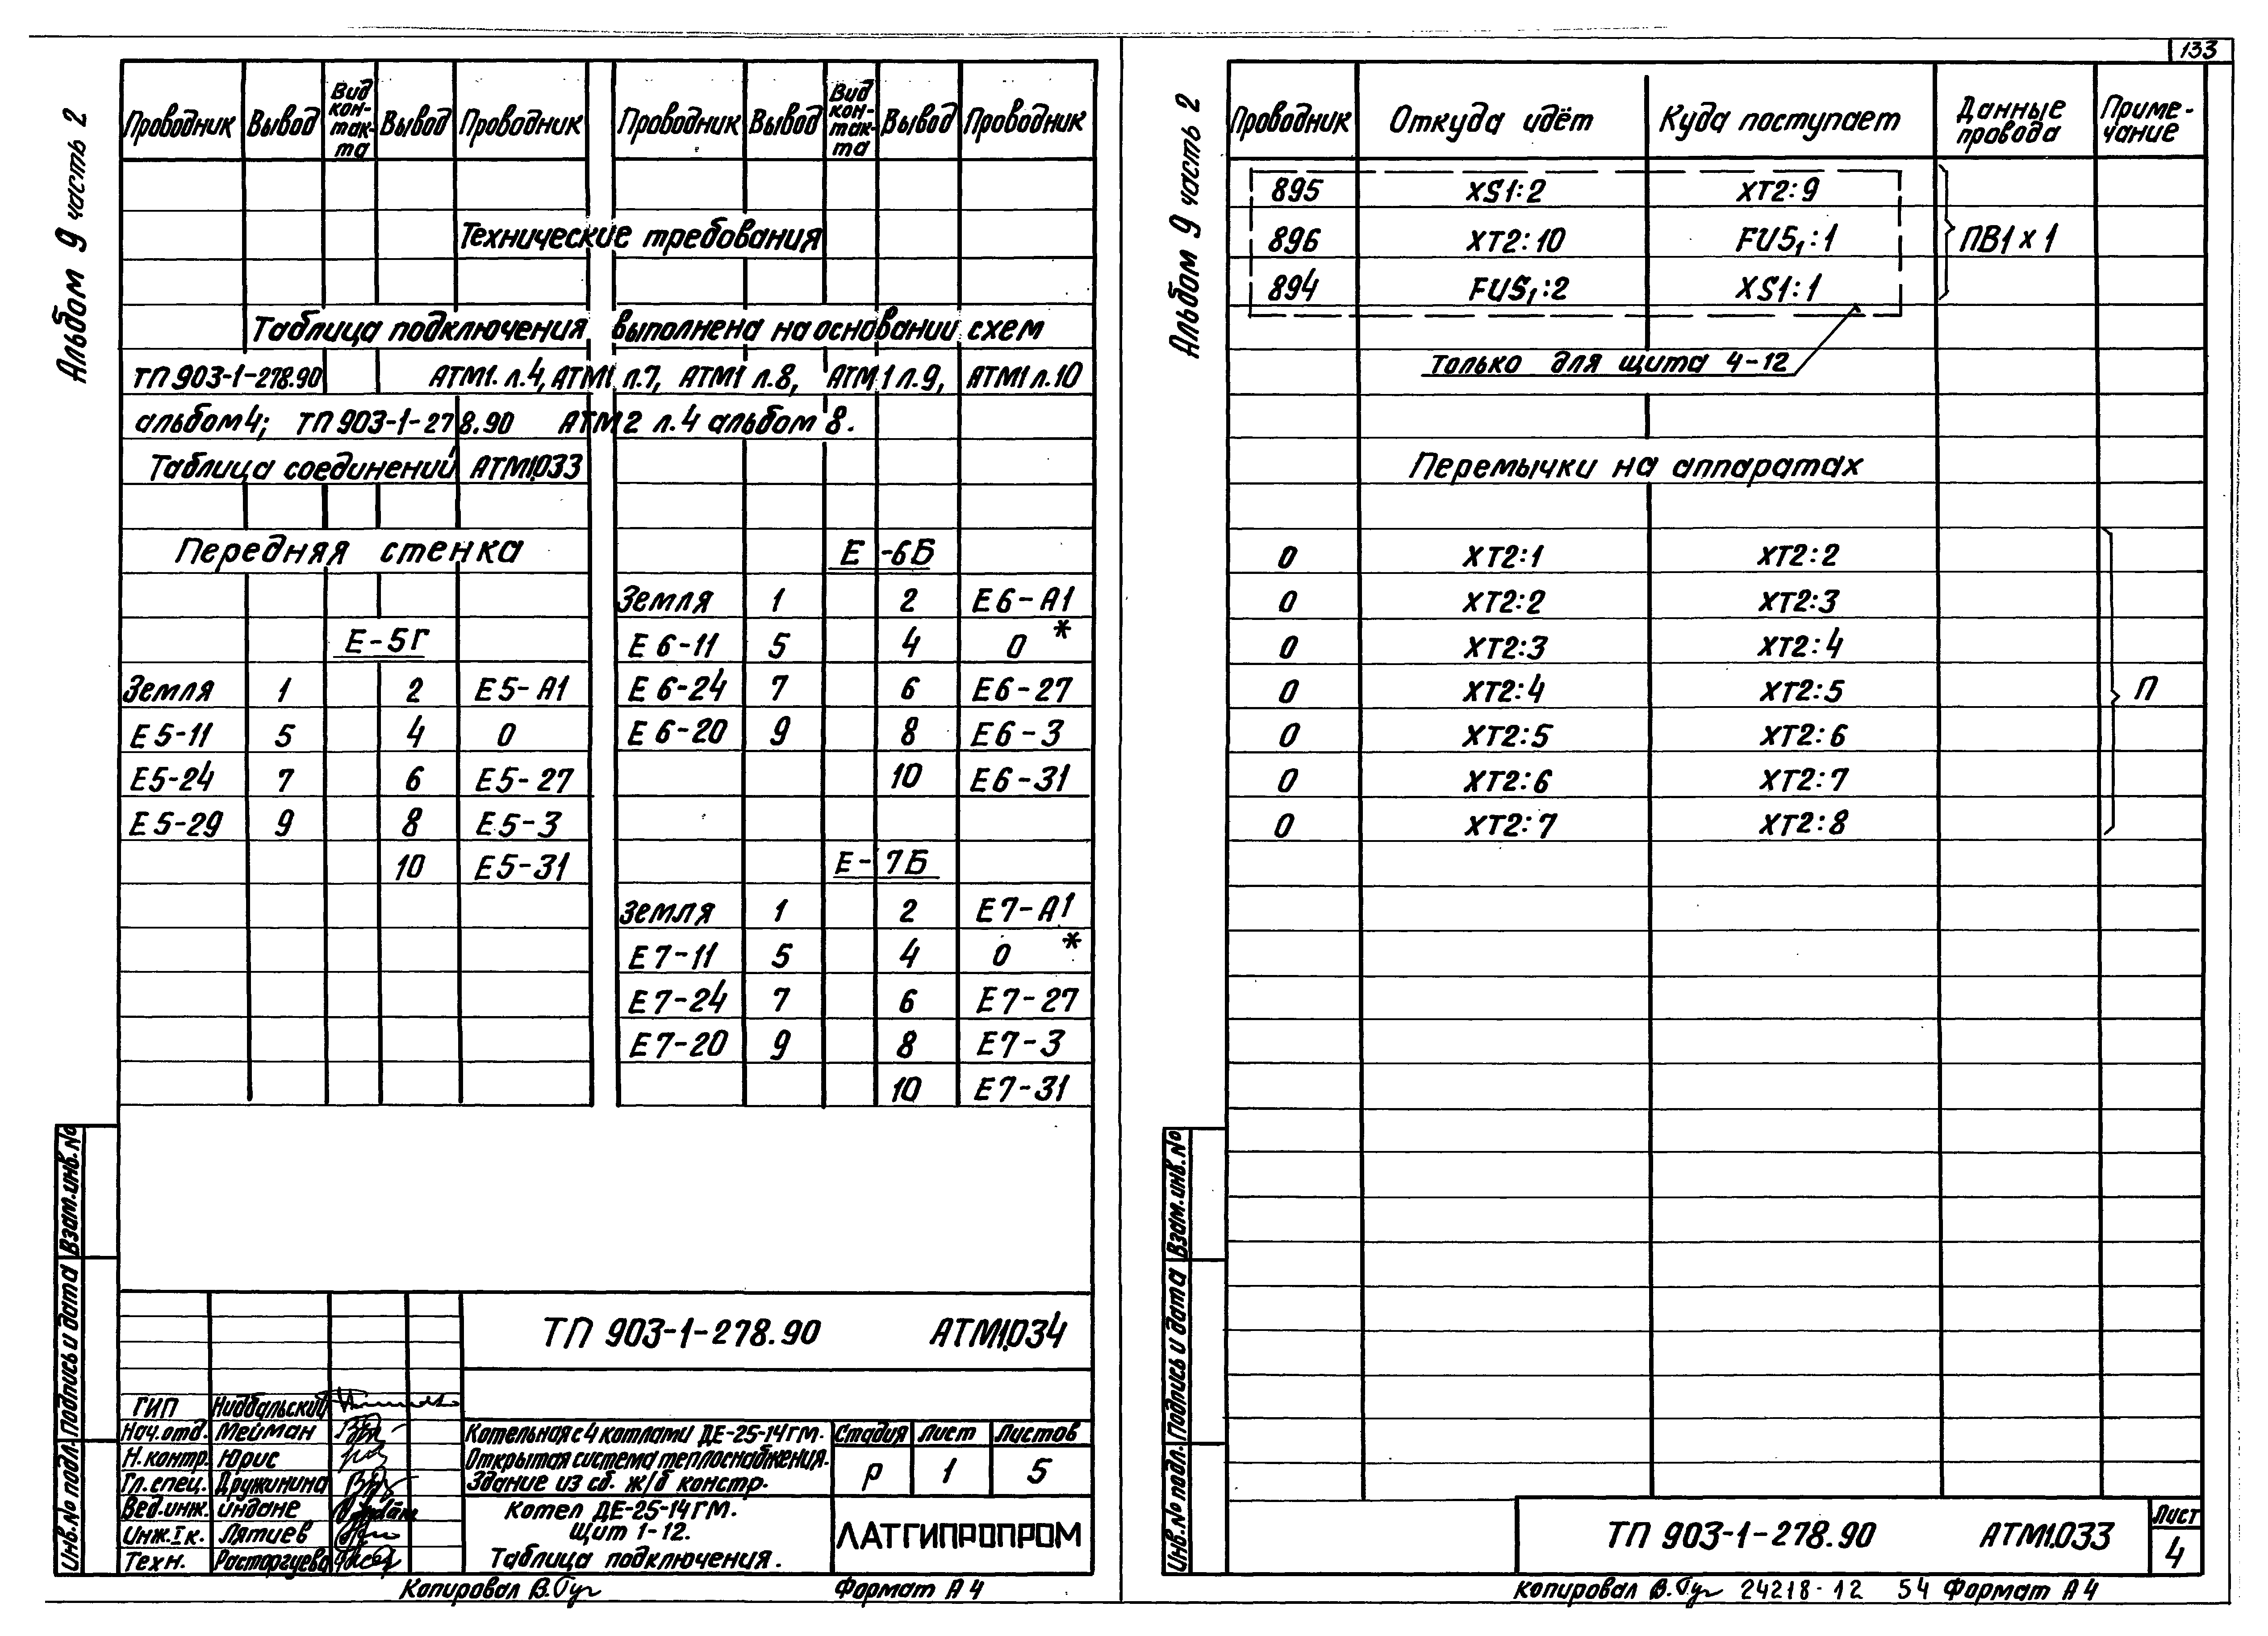 Альбом 9 часть 2
Проводник Вывод Вид кон- так- та Вывод Проводник Проводник Вывод Вид кон- так- та Вывод Проводник
Технические требования
Таблица подключения выполнена на основании схем
ТП 903-1-278.90 АТМ1. л.4, АТМ1 л.7, АТМ1 л.8, АТМ1 л.9, АТМ1 л.10
альбом 4; ТП 903-1-278.90 АТМ2 л.4 альбом 8.
Таблица соединений АТМ1.033
Передняя стенка
Е-5Г
Земля 1 2 Е5-А1
Е5-11 5 4 0
Е5-24 7 6 Е5-27
Е5-29 9 8 Е5-3
10 Е5-31
Е-6Б
Земля 1 2 Е6-А1
Е6-11 5 4 0 *
Е6-24 7 6 Е6-27
Е6-20 9 8 Е6-3
10 Е6-31
Е-7Б
Земля 1 2 Е7-А1
Е7-11 5 4 0 *
Е7-24 7 6 Е7-27
Е7-20 9 8 Е7-3
10 Е7-31
Взам.инв.№
Подпись и дата
Инв.№ подл.
ТП 903-1-278.90 АТМ1.034
ГИП Нидбальский
Нач.отд. Мейман
Н.контр. Юрис
Гл.спец. Дружинина
Вед.инж. Индане
Инж.Iк. Лятиев
Техн. Расторгуева
Котельная с 4 котлами ДЕ-25-14ГМ.
Открытая система теплоснабжения.
Здание из сб. ж/б констр.
Стадия Лист Листов
Р 1 5
Котел ДЕ-25-14ГМ.
Щит 1-12.
Таблица подключения.
ЛАТГИПРОПРОМ
Копировал Формат А4
133
Альбом 9 часть 2
Проводник Откуда идёт Куда поступает Данные провода Приме- чание
895 XS1:2 XT2:9
896 XT2:10 FU5₁:1 ПВ1х1
894 FU5₁:2 XS1:1
только для щита 4-12
Перемычки на аппаратах
0 XT2:1 XT2:2
0 XT2:2 XT2:3
0 XT2:3 XT2:4
0 XT2:4 XT2:5 П
0 XT2:5 XT2:6
0 XT2:6 XT2:7
0 XT2:7 XT2:8
Взам.инв.№
Подпись и дата
Инв.№ подл.
ТП 903-1-278.90 АТМ1.033
Лист
4
Копировал 24218-12 54 Формат А4